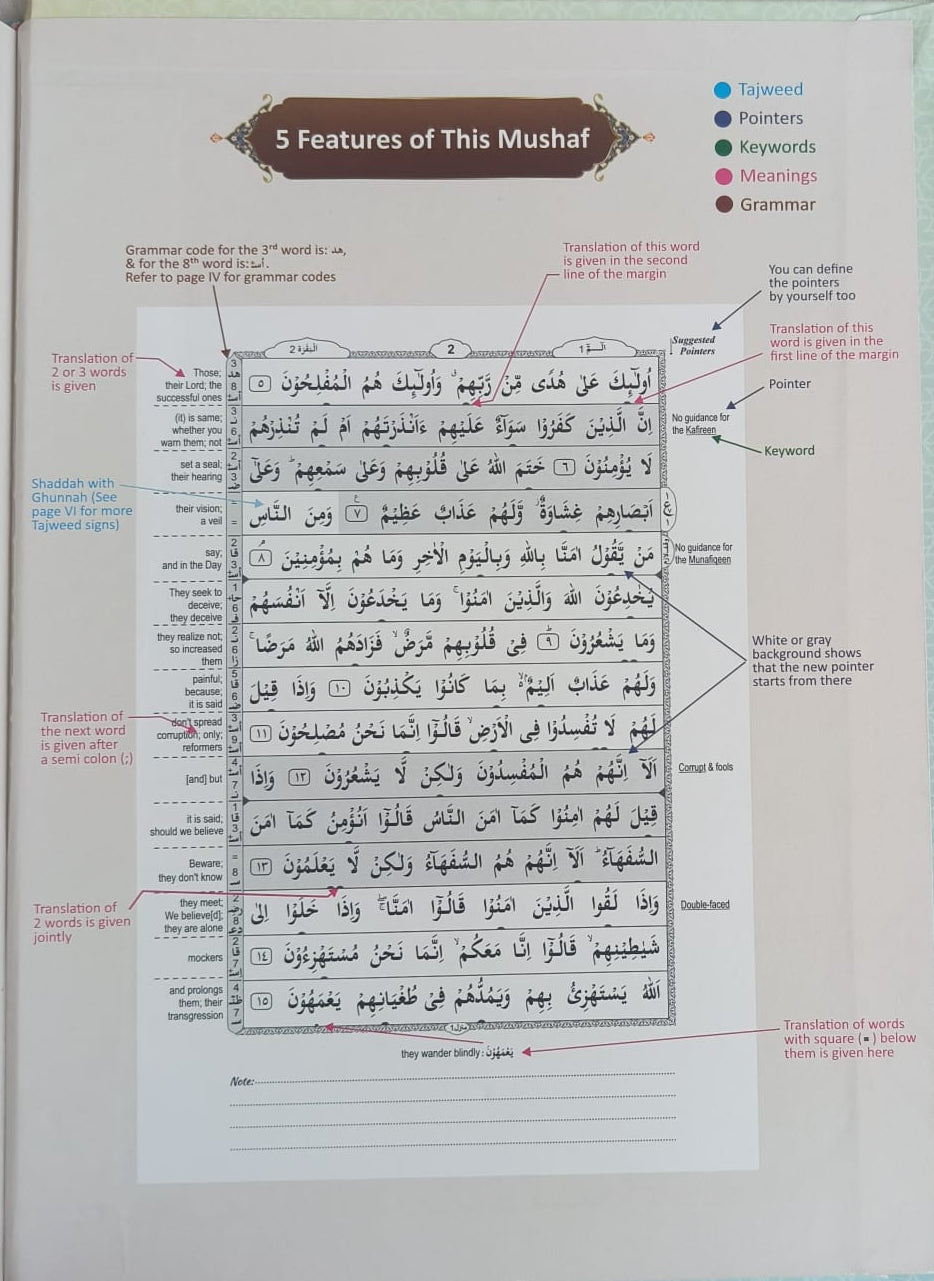 5 Features of This Mushaf
Tajweed
Pointers
Keywords
Meanings
Grammar
Grammar code for the 3rd word is: هد,
& for the 8th word is: أسـ.
Refer to page IV for grammar codes
Translation of this word
is given in the second
line of the margin
You can define
the pointers
by yourself too
Translation of
2 or 3 words
is given
Translation of this
word is given in the
first line of the margin
Pointer
Keyword
Shaddah with
Ghunnah (See
page VI for more
Tajweed signs)
White or gray
background shows
that the new pointer
starts from there
Translation of
the next word
is given after
a semi colon (;)
Translation of
2 words is given
jointly
Translation of words
with square (▪) below
them is given here
البقرة 2
2
الٓـمّٓ 1
Suggested
Pointers
Those;
their Lord; the
successful ones
(it) is same;
whether you
warn them; not
set a seal;
their hearing
their vision;
a veil
say;
and in the Day
They seek to
deceive;
they deceive
they realize not;
so increased
them
painful;
because;
it is said
don't spread
corruption; only;
reformers
[and] but
it is said;
should we believe
Beware;
they don't know
they meet;
We believe[d];
they are alone
mockers
and prolongs
them; their
transgression
اُولٰٓئِكَ عَلٰى هُدًى مِّنْ رَّبِّهِمْ ۙ وَاُولٰٓئِكَ هُمُ الْمُفْلِحُوْنَ ٥
اِنَّ الَّذِيْنَ كَفَرُوْا سَوَآءٌ عَلَيْهِمْ ءَاَنْذَرْتَهُمْ اَمْ لَمْ تُنْذِرْهُمْ
لَا يُؤْمِنُوْنَ ٦ خَتَمَ اللّٰهُ عَلٰى قُلُوْبِهِمْ وَعَلٰى سَمْعِهِمْ ؕ وَعَلٰٓى
اَبْصَارِهِمْ غِشَاوَةٌ ۙ وَّلَهُمْ عَذَابٌ عَظِيْمٌ ٧ وَمِنَ النَّاسِ
مَنْ يَّقُوْلُ اٰمَنَّا بِاللّٰهِ وَبِالْيَوْمِ الْاٰخِرِ وَمَا هُمْ بِمُؤْمِنِيْنَ ٨
يُخٰدِعُوْنَ اللّٰهَ وَالَّذِيْنَ اٰمَنُوْا ۚ وَمَا يَخْدَعُوْنَ اِلَّآ اَنْفُسَهُمْ
وَمَا يَشْعُرُوْنَ ٩ فِيْ قُلُوْبِهِمْ مَّرَضٌ ۙ فَزَادَهُمُ اللّٰهُ مَرَضًا ۚ
وَلَهُمْ عَذَابٌ اَلِيْمٌ ۙ۬ بِمَا كَانُوْا يَكْذِبُوْنَ ١٠ وَاِذَا قِيْلَ
لَهُمْ لَا تُفْسِدُوْا فِى الْاَرْضِ ۙ قَالُوْٓا اِنَّمَا نَحْنُ مُصْلِحُوْنَ ١١
اَلَآ اِنَّهُمْ هُمُ الْمُفْسِدُوْنَ وَلٰكِنْ لَّا يَشْعُرُوْنَ ١٢ وَاِذَا
قِيْلَ لَهُمْ اٰمِنُوْا كَمَآ اٰمَنَ النَّاسُ قَالُوْٓا اَنُؤْمِنُ كَمَآ اٰمَنَ
السُّفَهَآءُ ؕ اَلَآ اِنَّهُمْ هُمُ السُّفَهَآءُ وَلٰكِنْ لَّا يَعْلَمُوْنَ ١٣
وَاِذَا لَقُوا الَّذِيْنَ اٰمَنُوْا قَالُوْٓا اٰمَنَّا ۖۚ وَاِذَا خَلَوْا اِلٰى
شَيٰطِيْنِهِمْ ۙ قَالُوْٓا اِنَّا مَعَكُمْ ۙ اِنَّمَا نَحْنُ مُسْتَهْزِءُوْنَ ١٤
اَللّٰهُ يَسْتَهْزِئُ بِهِمْ وَيَمُدُّهُمْ فِيْ طُغْيَانِهِمْ يَعْمَهُوْنَ ١٥
No guidance for
the Kafireen
No guidance for
the Munafiqeen
Corrupt & fools
Double-faced
منزل ١
they wander blindly : يَعْمَهُوْنَ
Note: